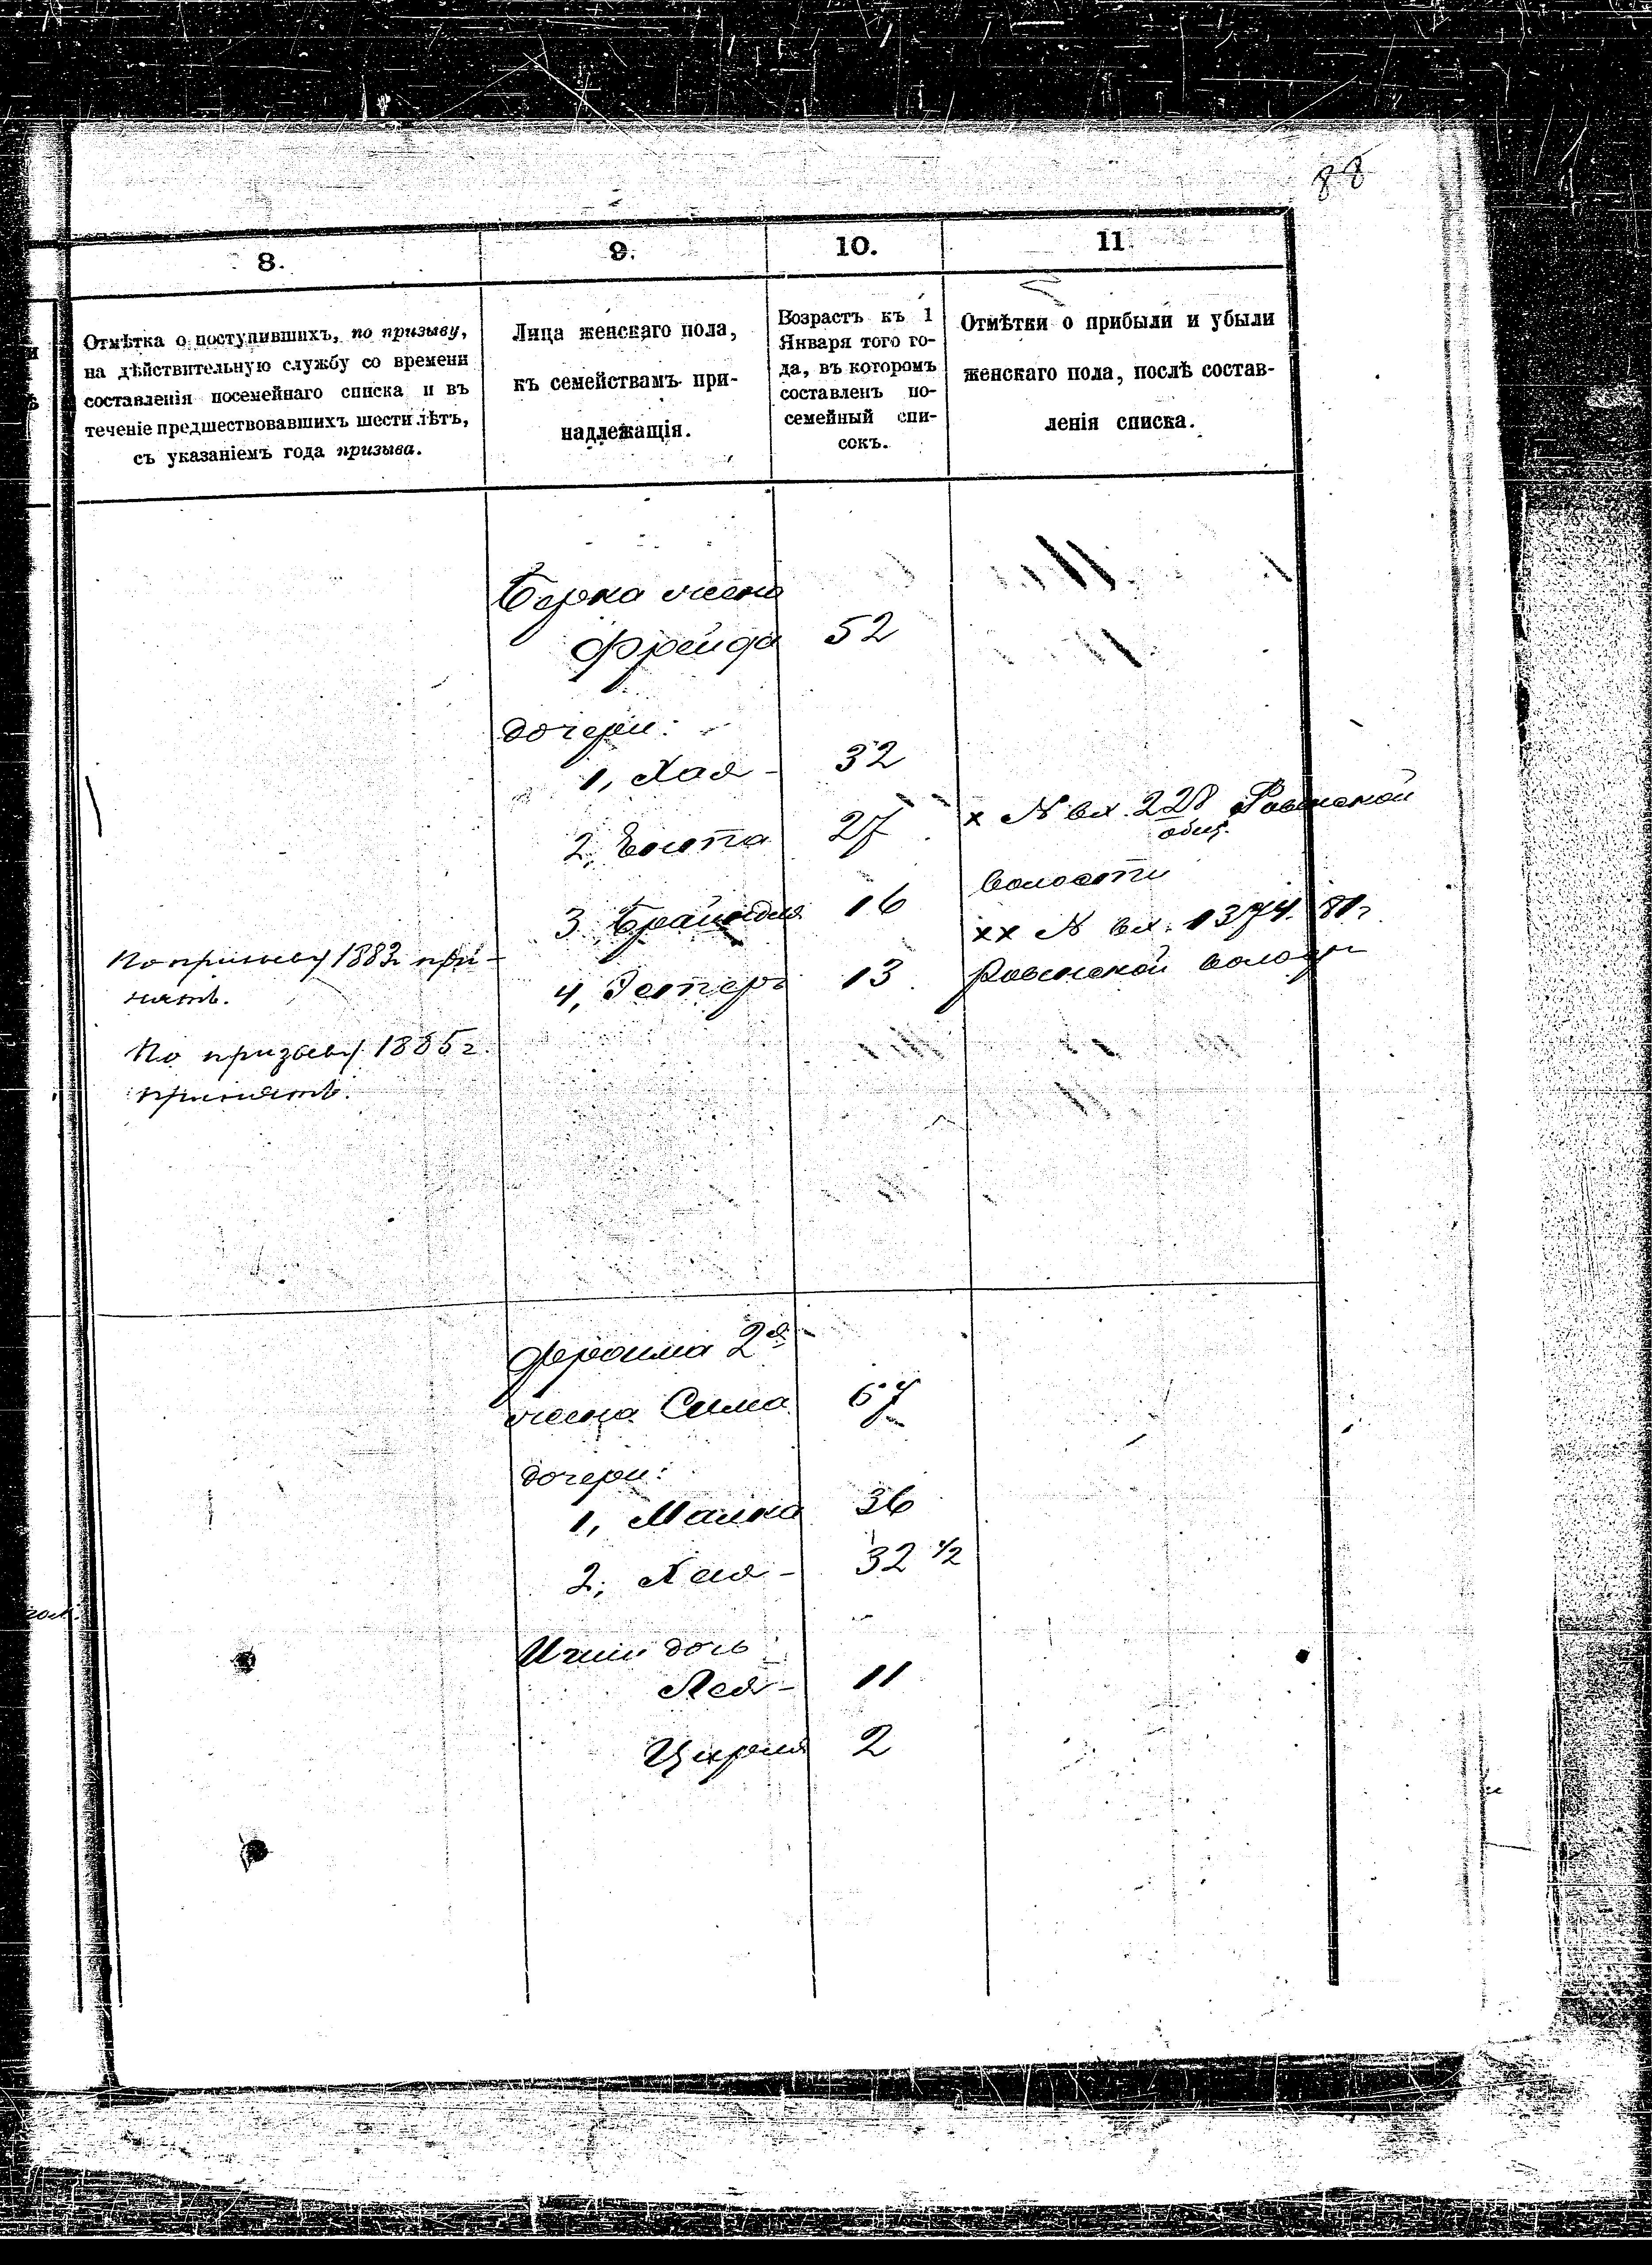 88
8.
9.
10.
11.
Отмѣтка о поступившихъ, по призыву,
на дѣйствительную службу со времени
составленія посемейнаго списка и въ
теченіе предшествовавшихъ шести лѣтъ,
съ указаніемъ года призыва.
Лица женскаго пола,
къ семействамъ при-
надлежащія.
Возрастъ къ 1
Января того го-
да, въ которомъ
составленъ по-
семейный спи-
сокъ.
Отмѣтки о прибыли и убыли
женскаго пола, послѣ состав-
ленія списка.
Берка жена
Фрейда 52
дочери:
1, Хая - 32
2, 27
х № вх. 228 общ.
волости
3 16
хх № вх. 1374. 81 г
4, Эстеръ 13
волости
По призыву 1883 при-
нятъ.
По призыву 1885 г.
принятъ.
2я
жена Сима 67
дочери:
1, Малка 36
2; Хая - 32 1/2
дочь
Лея - 11
2